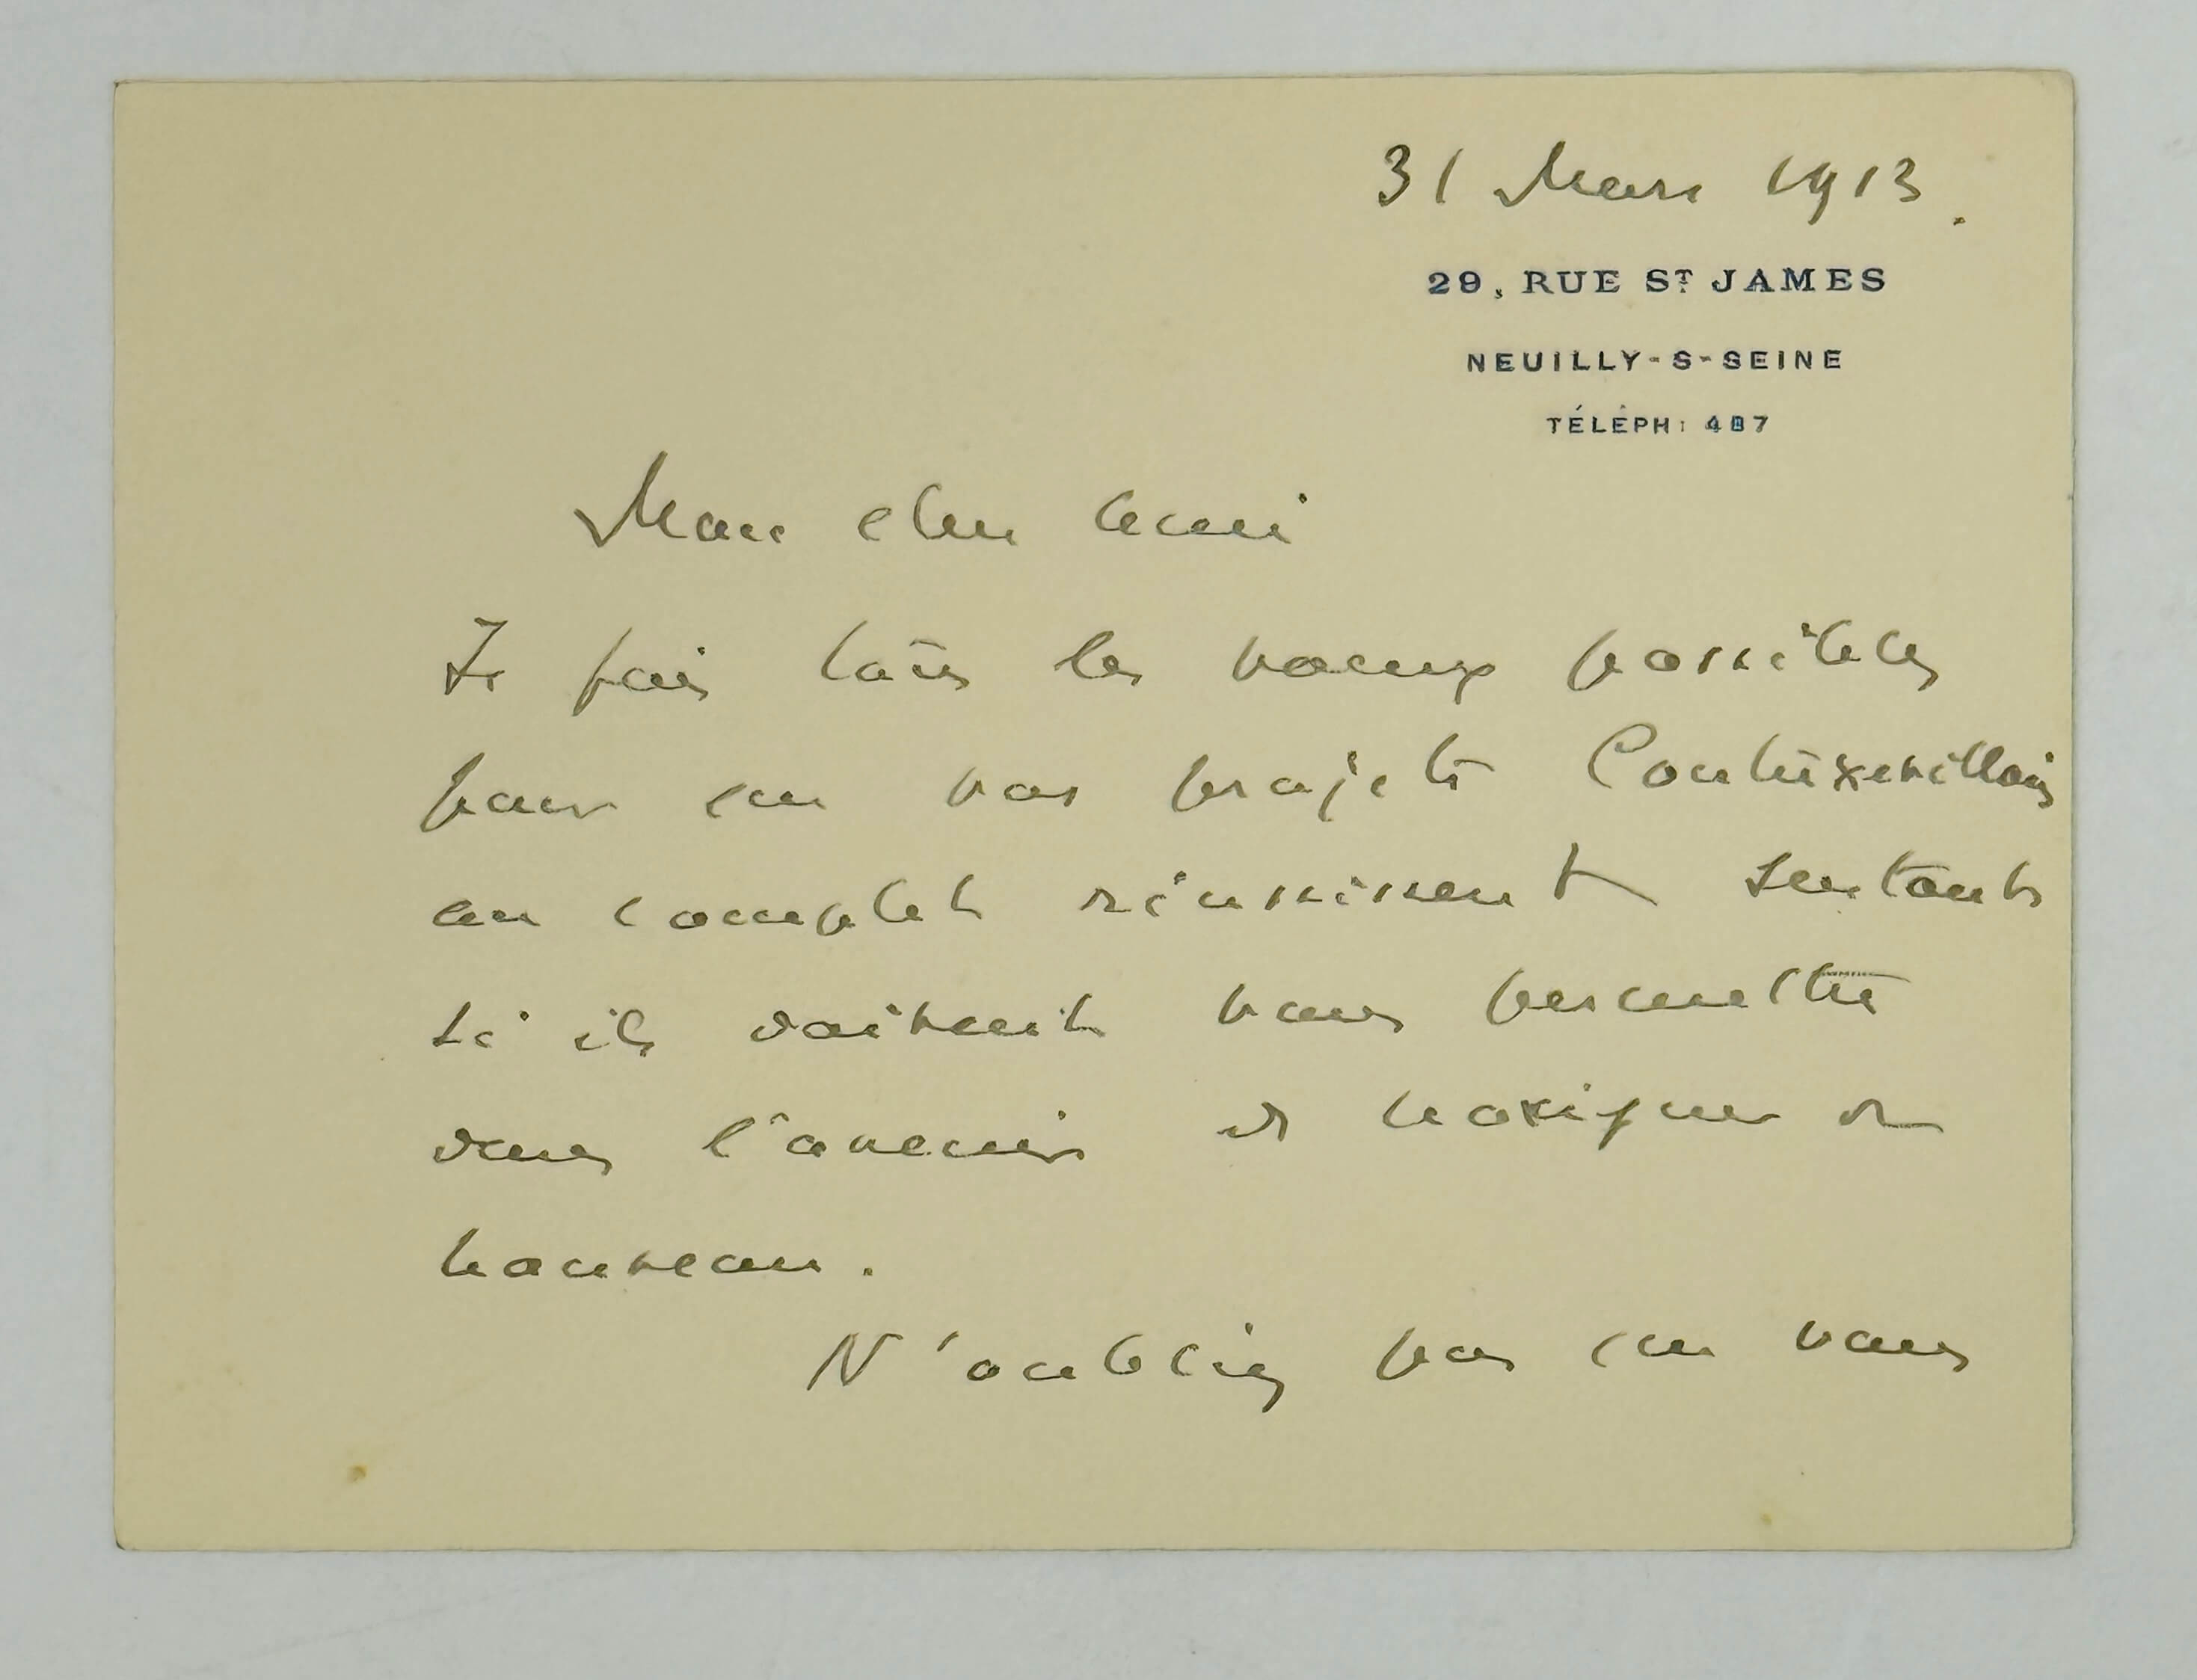 31 Mars 1913.
29, RUE ST JAMES
NEUILLY-S-SEINE
TÉLÉPH: 487
Mon cher ami
Je fais tous les vœux possibles
pour que vos projets Contrexevillois
au complet réussissent surtout
si ils doivent vous permettre
dans l'avenir de naviguer de
nouveau.
N'oubliez pas que vous